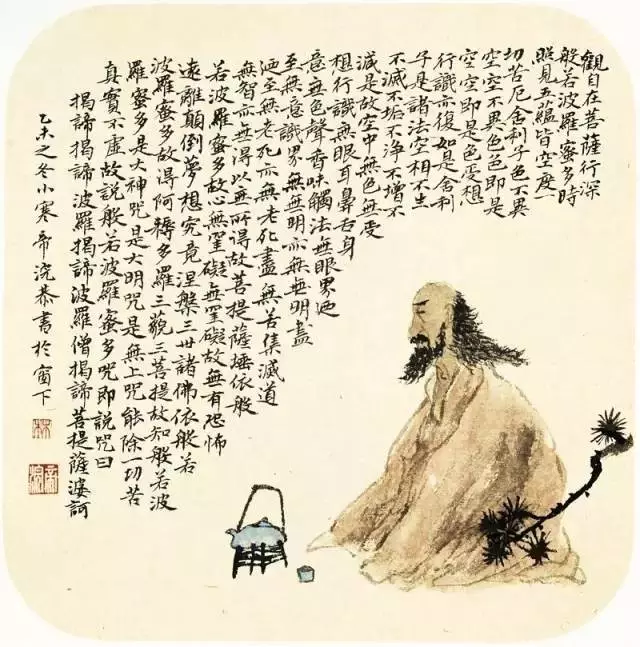 觀自在菩薩行深
般若波羅蜜多時
照見五蘊皆空度一
切苦厄舍利子色不異
空空不異色色即是
空空即是色受想
行識亦復如是舍利
子是諸法空相不生
不滅不垢不淨不增不
減是故空中無色無受
想行識無眼耳鼻舌身
意無色聲香味觸法無眼界迺
至無意識界無無明亦無無明盡
迺至無老死亦無老死盡無苦集滅道
無智亦無得以無所得故菩提薩埵依般
若波羅蜜多故心無罣礙無罣礙故無有恐怖
遠離顛倒夢想究竟涅槃三世諸佛依般若
波羅蜜多故得阿耨多羅三藐三菩提故知般若波
羅蜜多是大神咒是大明咒是無上咒能除一切苦
真實不虛故說般若波羅蜜多咒即說咒曰
揭諦揭諦波羅揭諦波羅僧揭諦菩提薩婆訶
乙未之冬小寒帝浣恭書於窗下